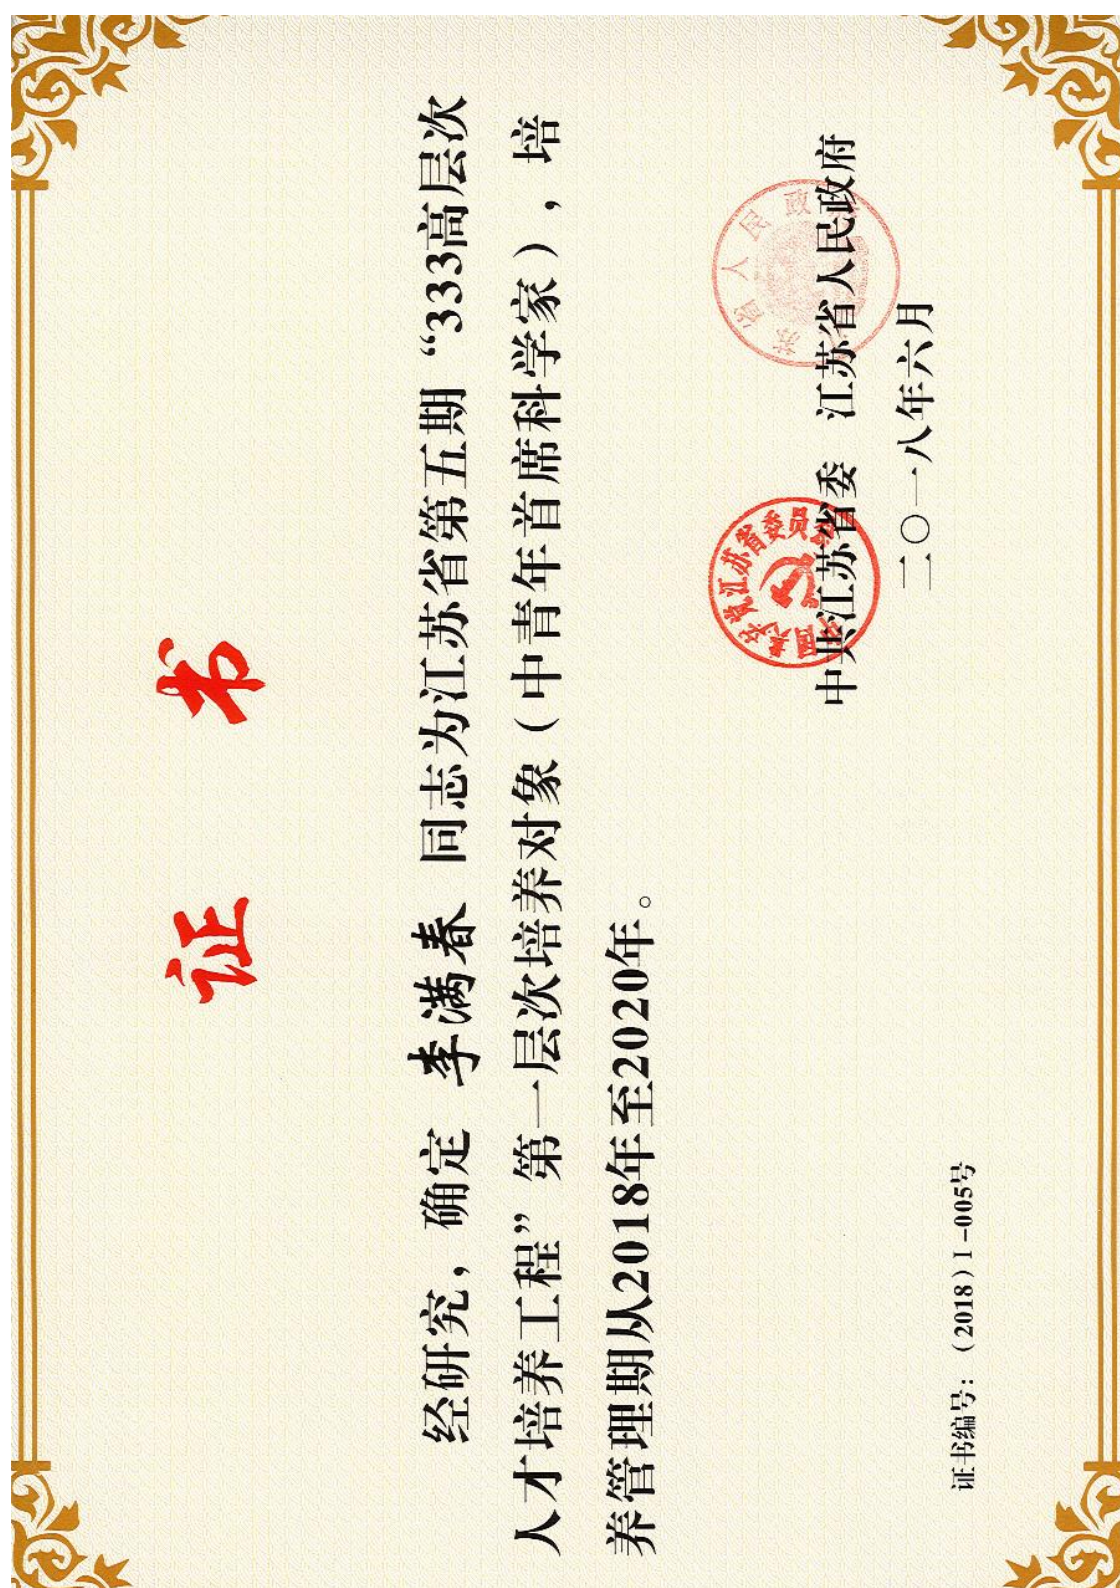 证书
经研究，确定 李满春 同志为江苏省第五期“333高层次
人才培养工程”第一层次培养对象（中青年首席科学家），培
养管理期从2018年至2020年。
中共江苏省委 江苏省人民政府
中国共产党江苏省委员会
苏省人民政
二〇一八年六月
证书编号：（2018）I-005号